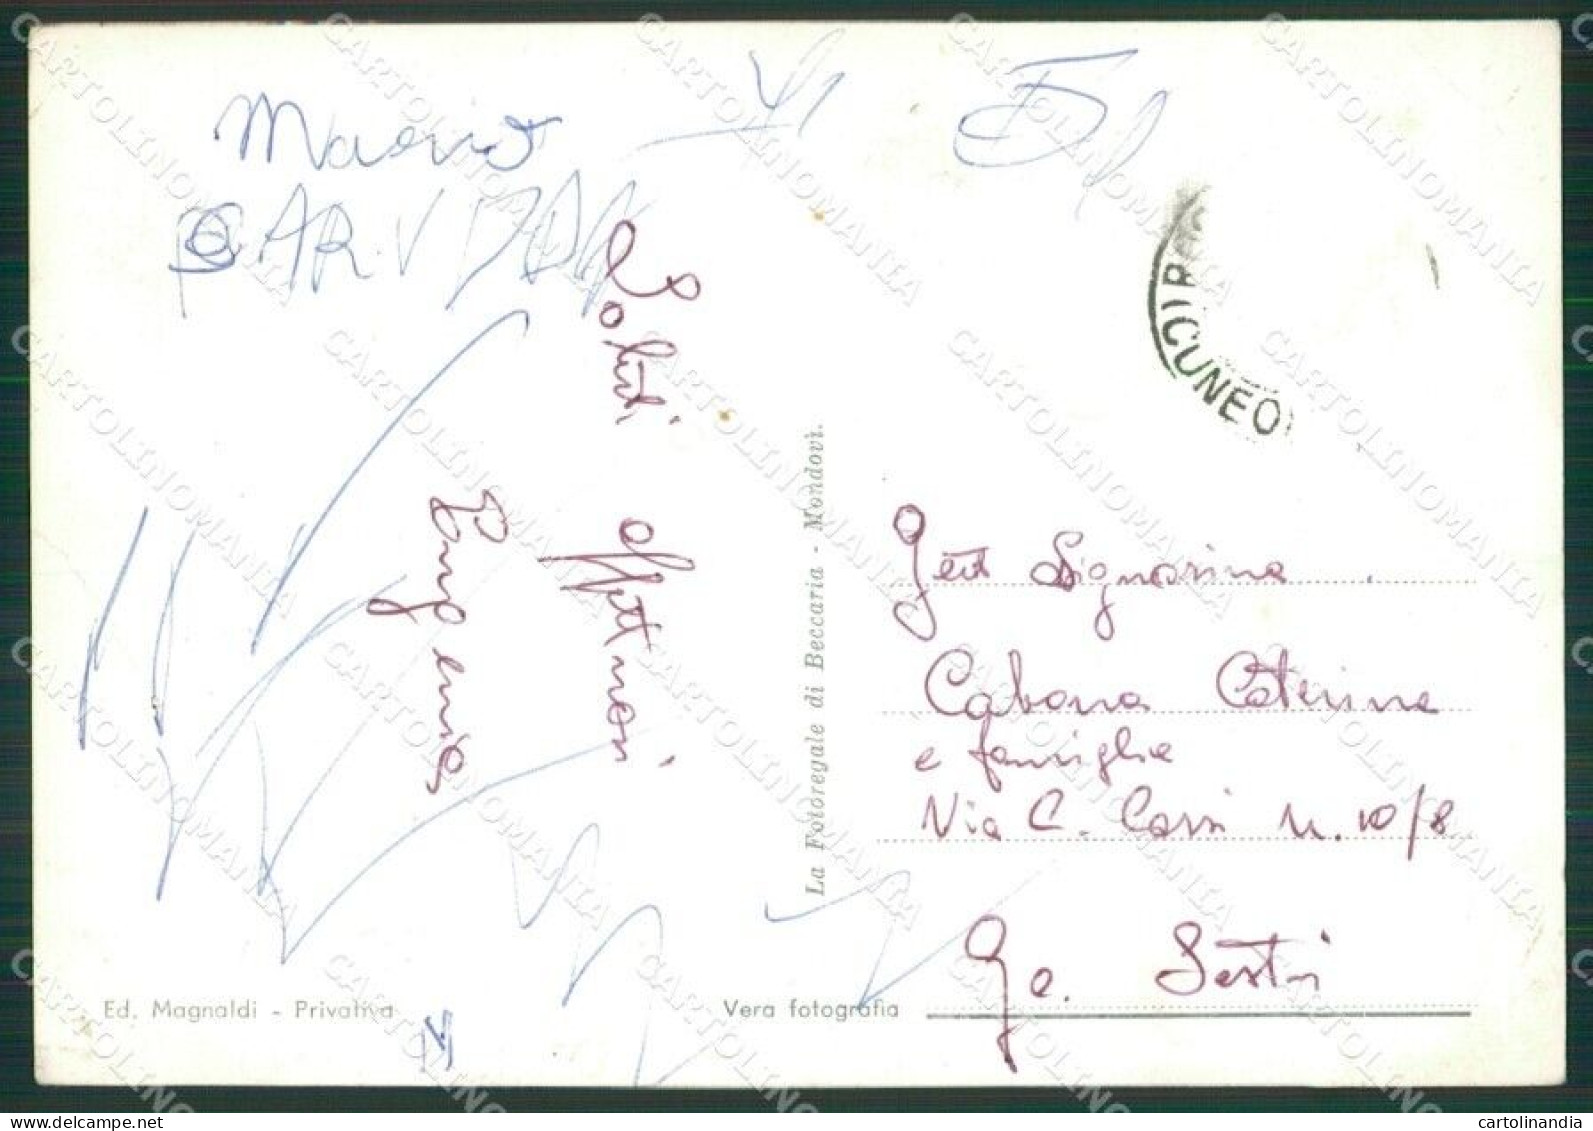 Saluti
Affettuosi
Eugenia
(CUNEO)
La Fotoregale di Beccaria - Mondovì.
Gent Signorina
Cabona Caterina
e famiglia
Via C. Corsi n. 10/8
Ge. Sestri
Ed. Magnaldi - Privativa
Vera fotografia
CARTOLINOMANIA
cartolinandia